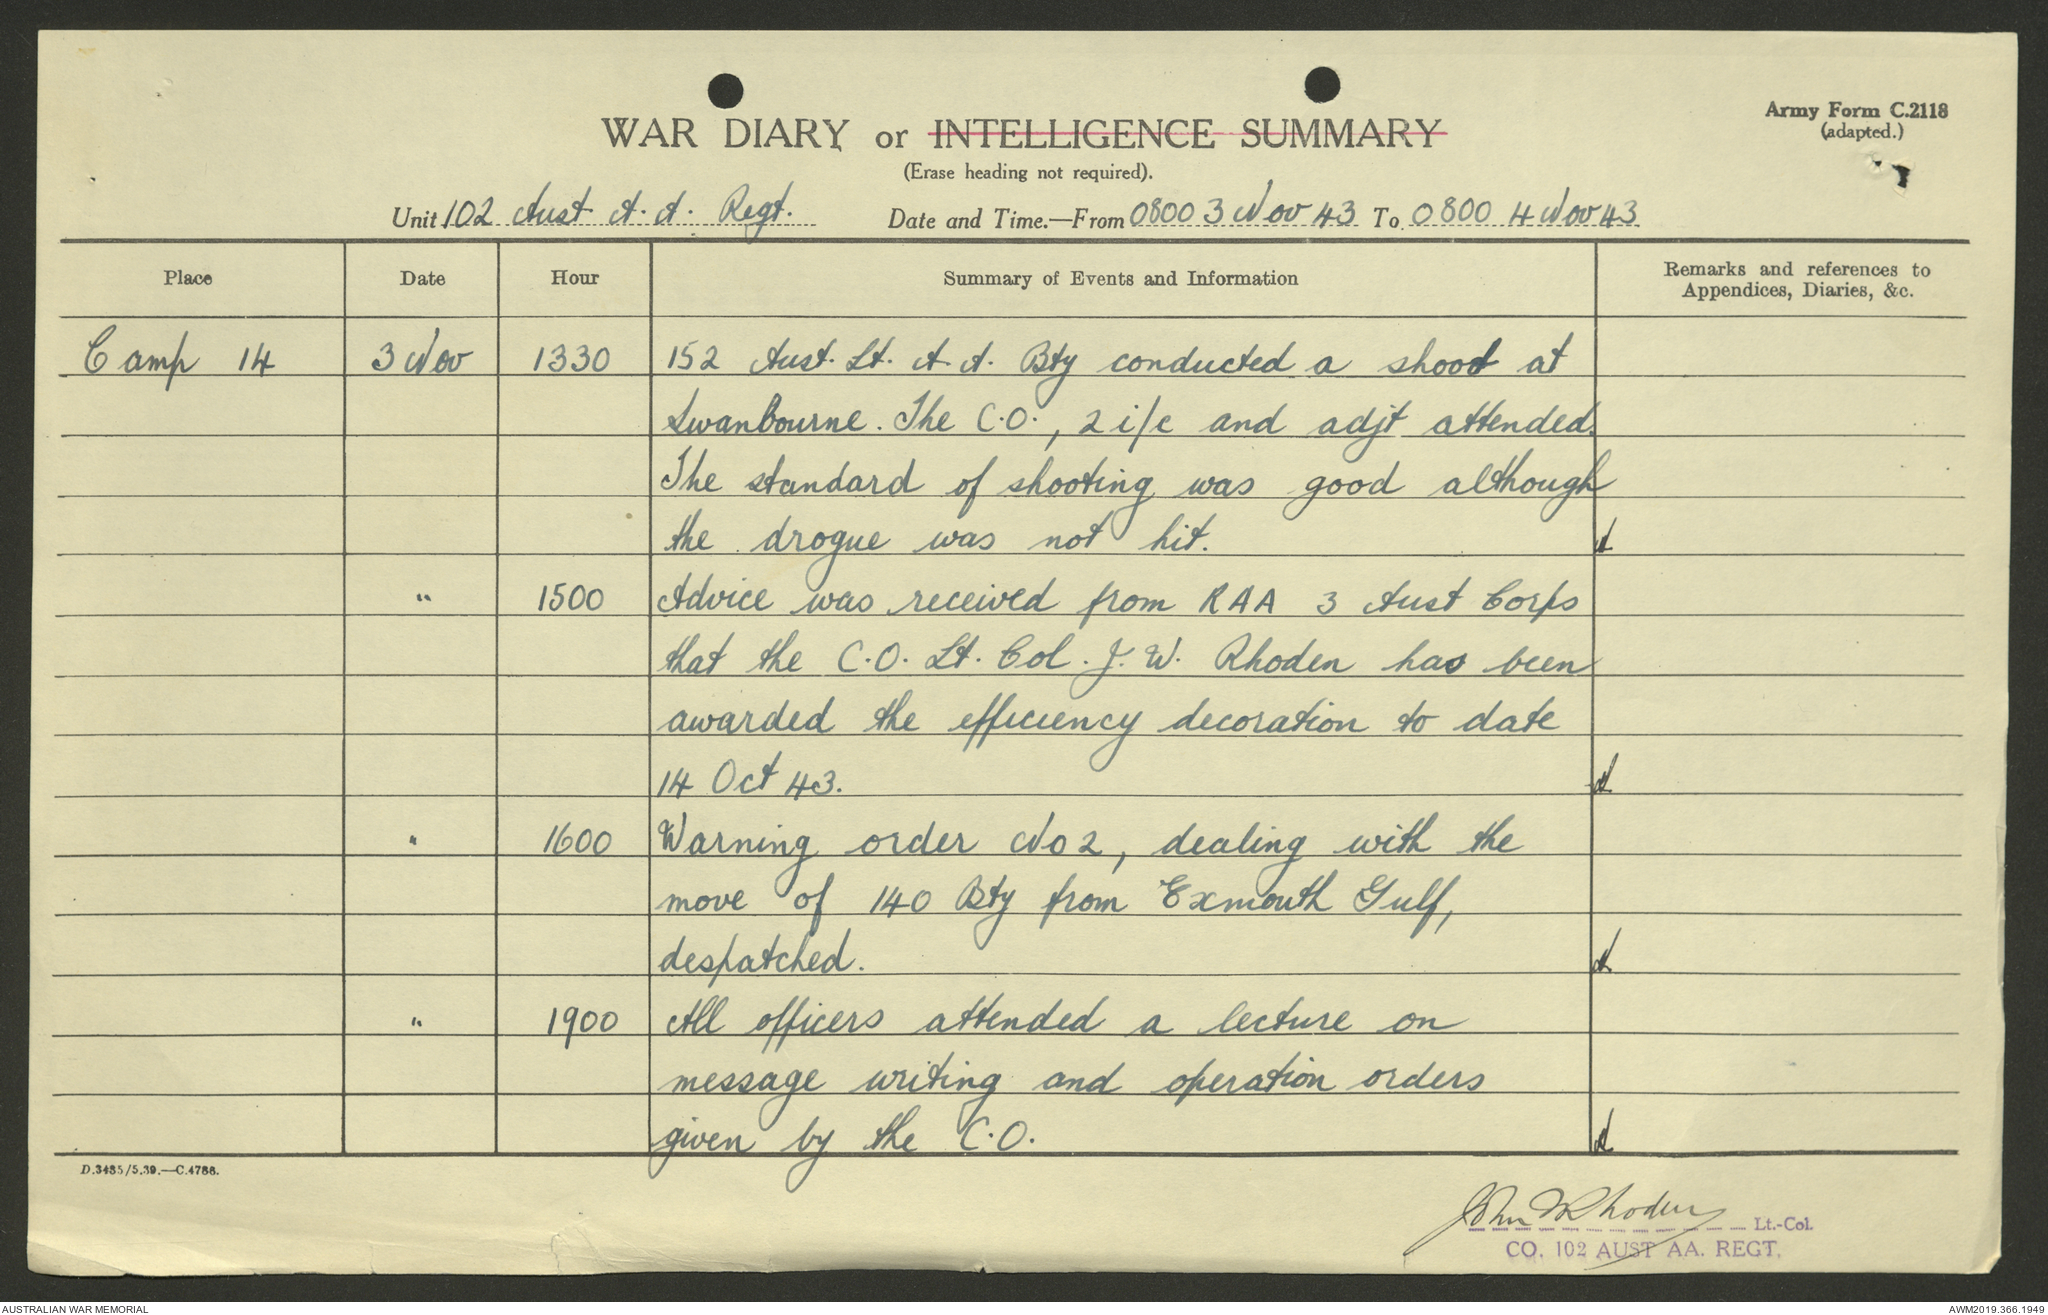 Army Form C.2118
(adapted.)
WAR DIARY or INTELLIGENCE SUMMARY
(Erase heading not required).
Unit 102 Aust A.A. Regt. Date and Time.—From 0800 3 Nov 43 To 0800 4 Nov 43
Place Date Hour Summary of Events and Information Remarks and references to
Appendices, Diaries, &c.
Camp 14 3 Nov 1330 152 Aust. Lt. A.A. Bty conducted a shoot at
Swanbourne. The C.O., 2 i/c and adjt attended.
The standard of shooting was good although
the drogue was not hit.
" 1500 Advice was received from RAA 3 Aust Corps
that the C.O. Lt. Col. J. W. Rhoden has been
awarded the efficiency decoration to date
14 Oct 43.
" 1600 Warning order No 2, dealing with the
move of 140 Bty from Exmouth Gulf,
despatched.
" 1900 All officers attended a lecture on
message writing and operation orders
given by the C.O.
D.3485/5.39.—C.4788.
John W Rhoden Lt.-Col.
CO. 102 AUST AA. REGT.
AUSTRALIAN WAR MEMORIAL AWM2019.366.1949